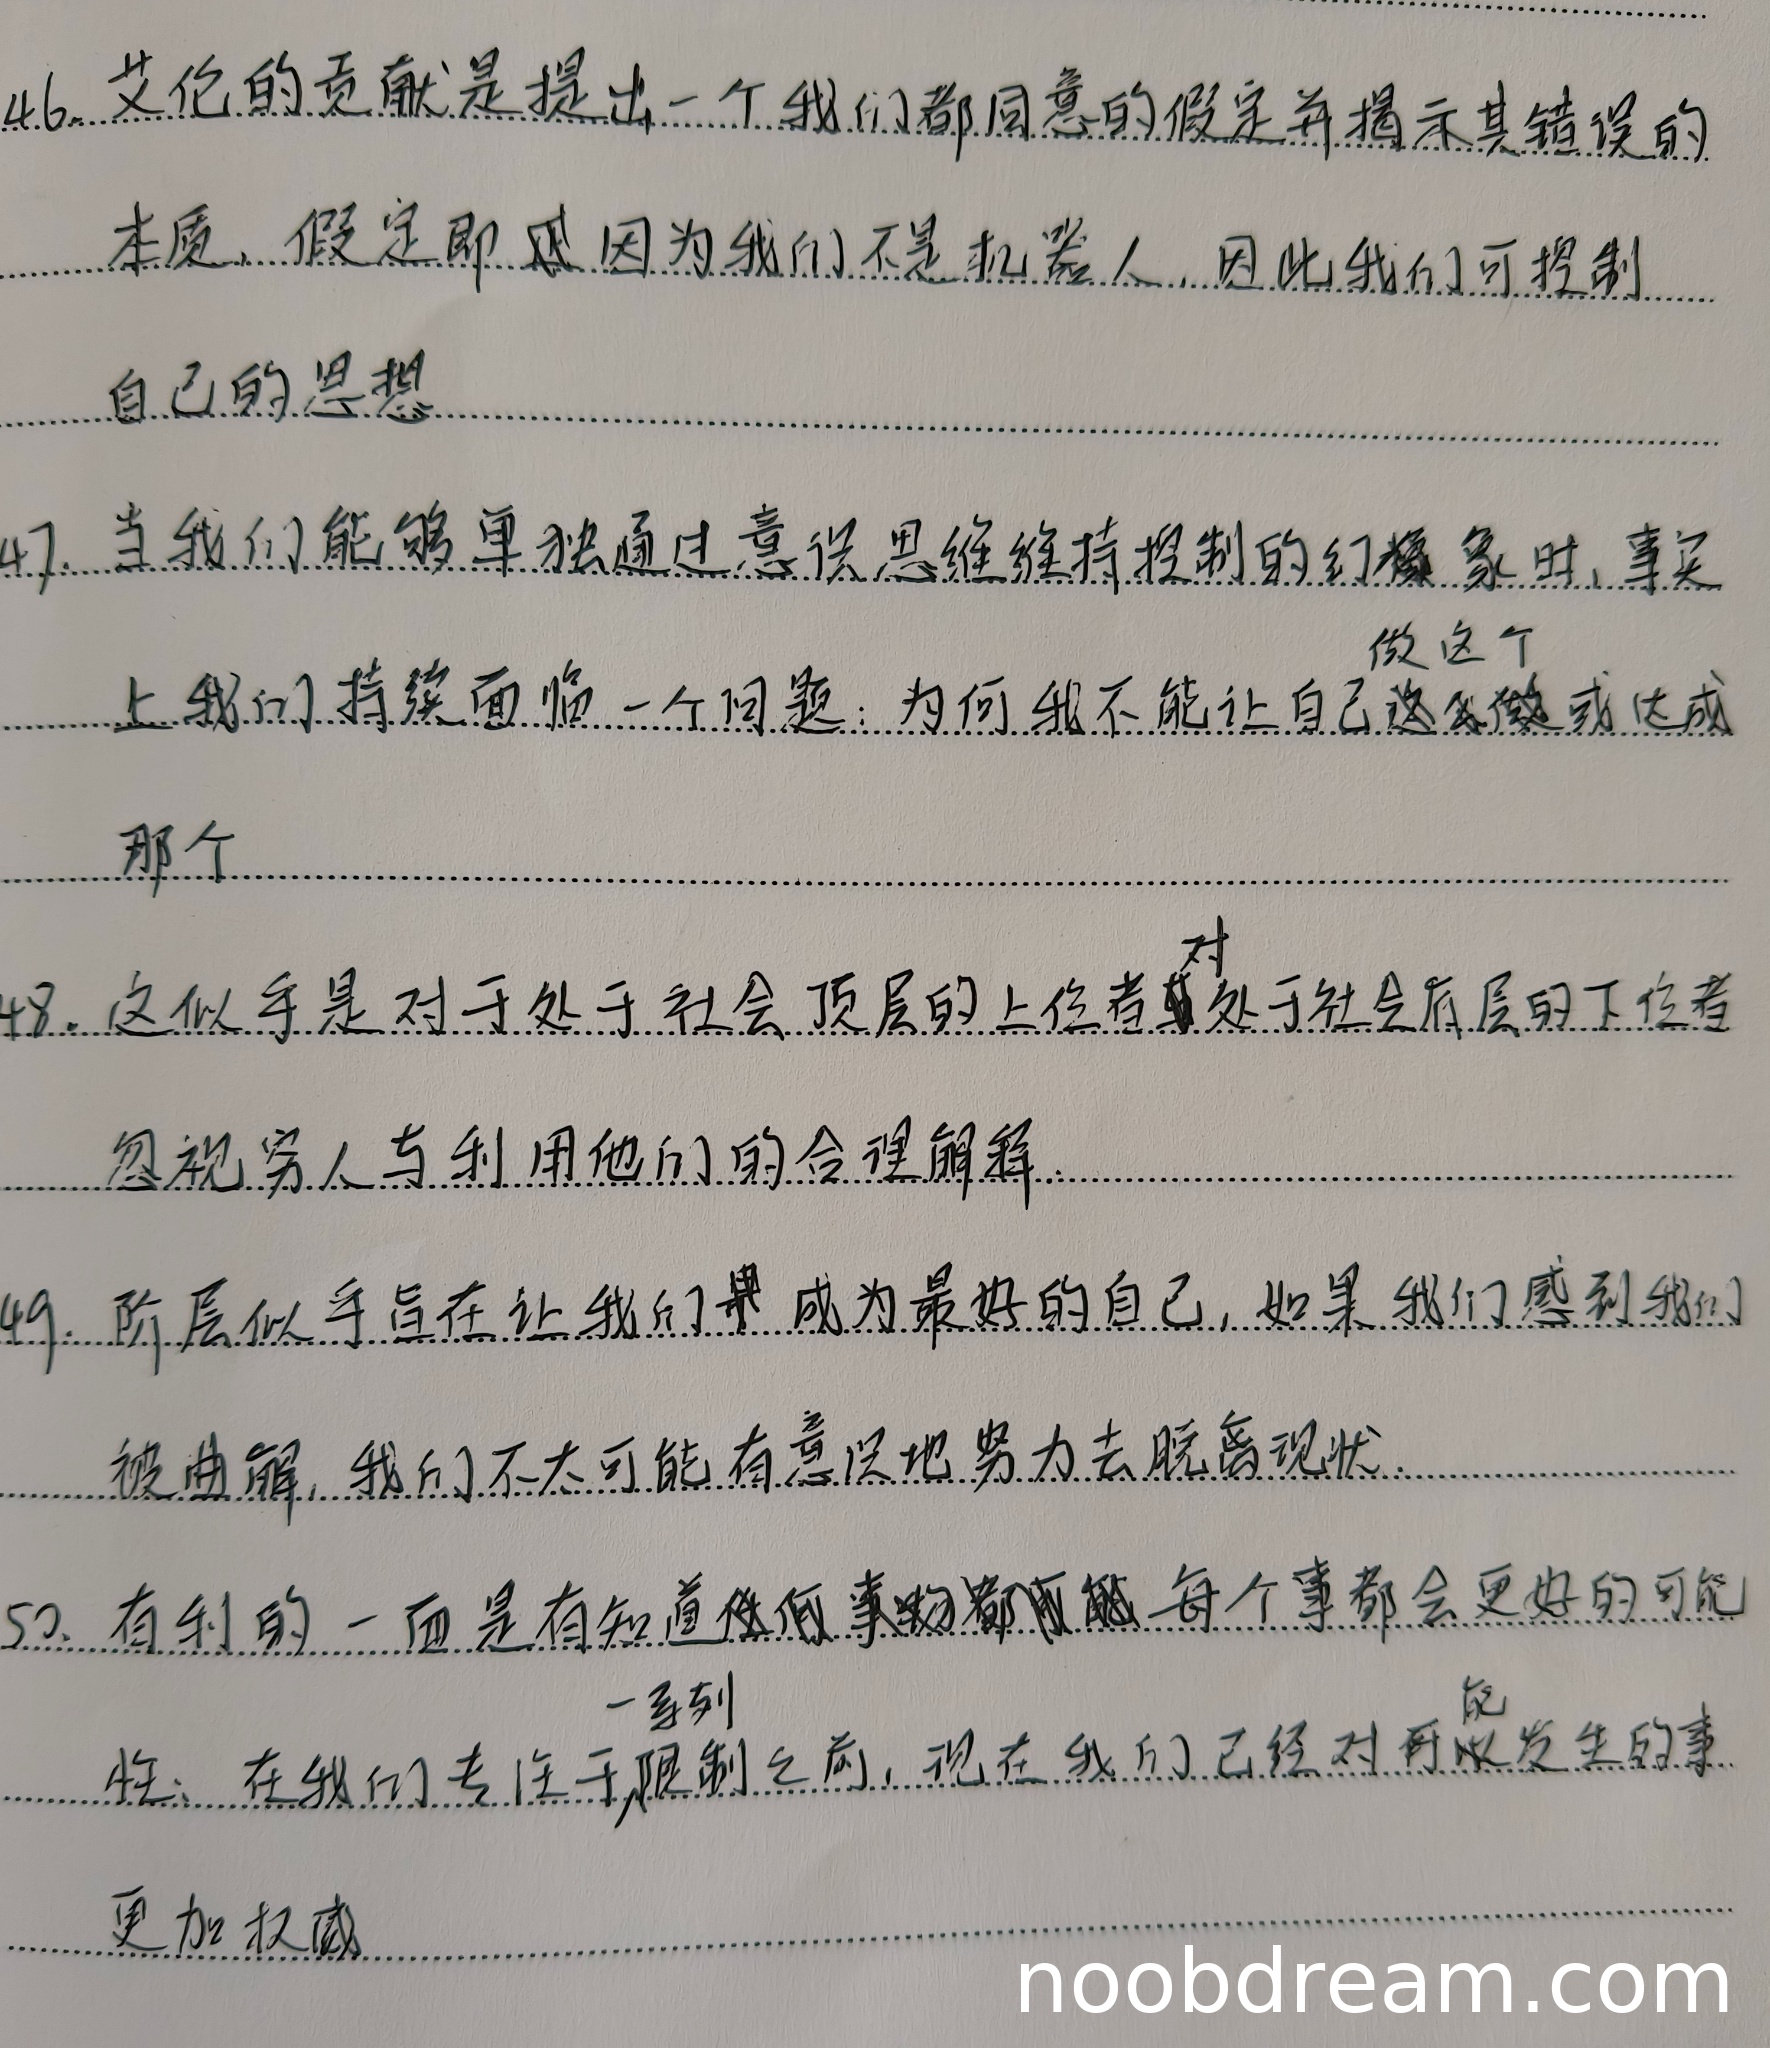 46. 艾伦的贡献是提出一个我们都同意的假定并揭示其错误的
本质，假定即因为我们不是机器人，因此我们可控制
自己的思想
47. 当我们能够单独通过意识思维维持控制的幻象时，事实
做这个
上我们持续面临一个问题：为何我不能让自己或达成
那个
对
48. 这似乎是对于处于社会顶层的上位者处于社会底层的下位者
忽视穷人与利用他们的合理解释.
49. 阶层似乎旨在让我们成为最好的自己，如果我们感到我们
被曲解，我们不太可能有意识地努力去脱离现状.
50. 有利的一面是有知道每个事都会更好的可能
一系列 能
性：在我们专注于限制之前，现在我们已经对可发生的事
更加权威
noobdream.com